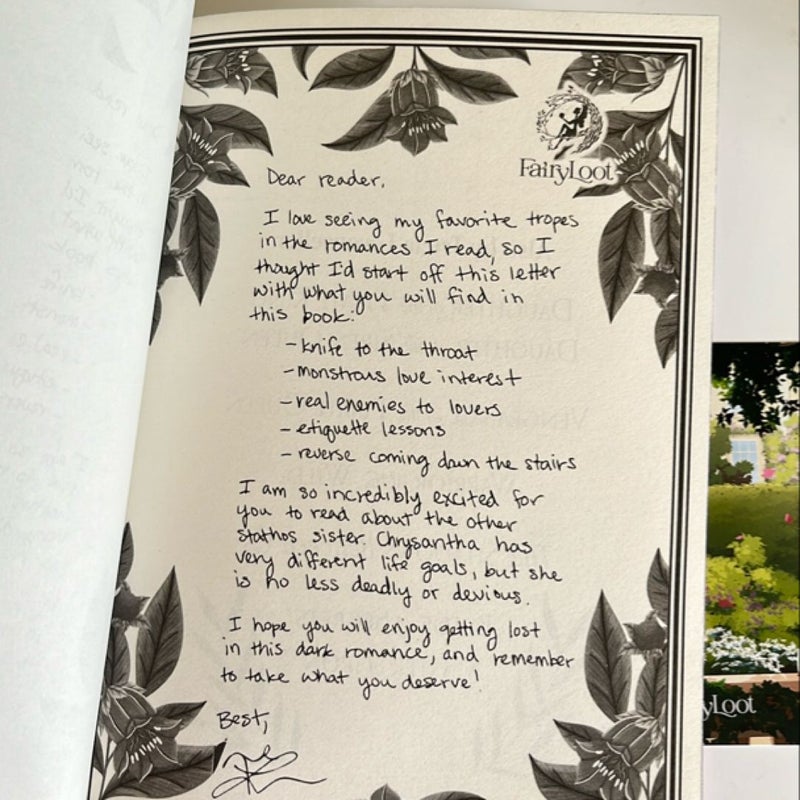 FairyLoot
Dear reader,
I love seeing my favorite tropes
in the romances I read, so I
thought I'd start off this letter
with what you will find in
this book:
- knife to the throat
- monstrous love interest
- real enemies to lovers
- etiquette lessons
- reverse coming down the stairs
I am so incredibly excited for
you to read about the other
stathos sister. Chrysantha has
very different life goals, but she
is no less deadly or devious.
I hope you will enjoy getting lost
in this dark romance, and remember
to take what you deserve!
Best,
yLoot